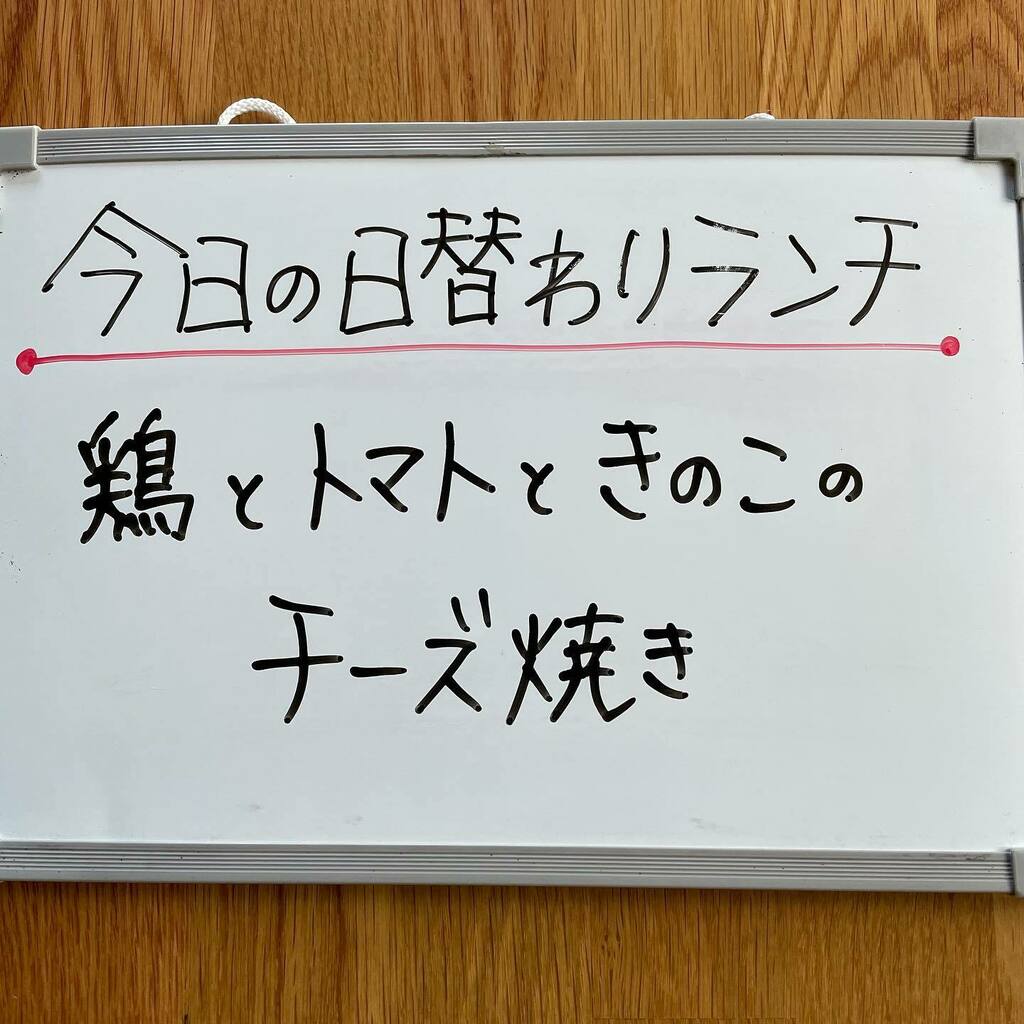 今日の日替わりランチ
鶏とトマトときのこの
チーズ焼き